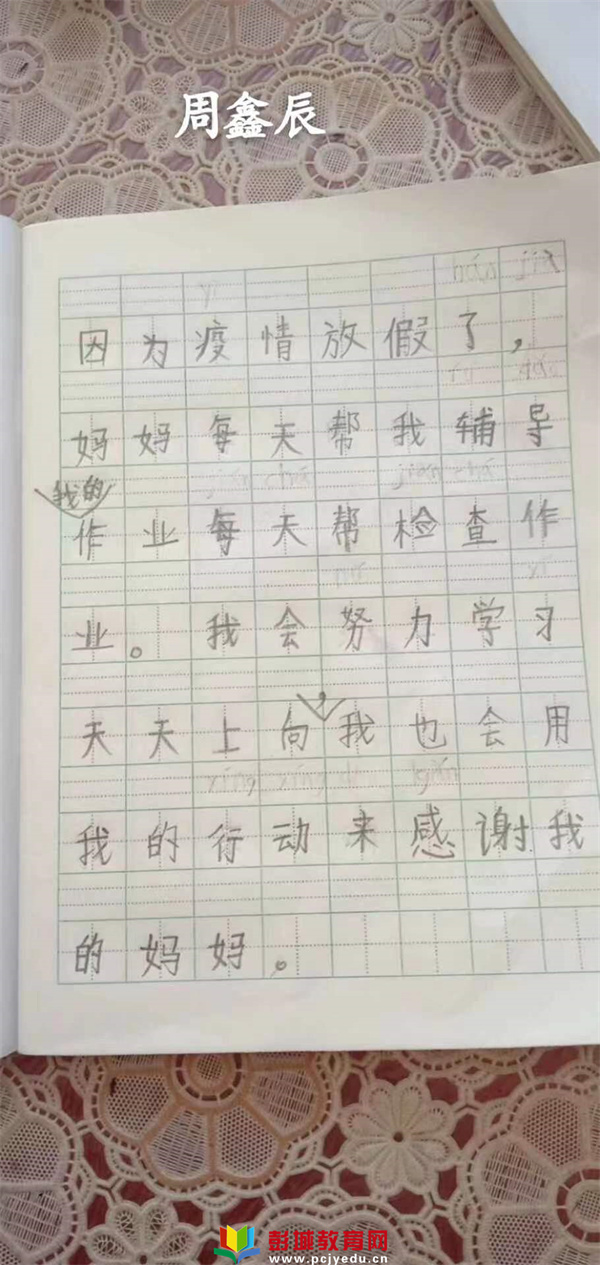 周鑫辰
因为疫情放假了，
妈妈每天帮我辅导
我的
作业每天帮检查作
业。我会努力学习
，
天天上向我也会用
我的行动来感谢我
的妈妈。
彭城教育网
www.pcjyedu.cn